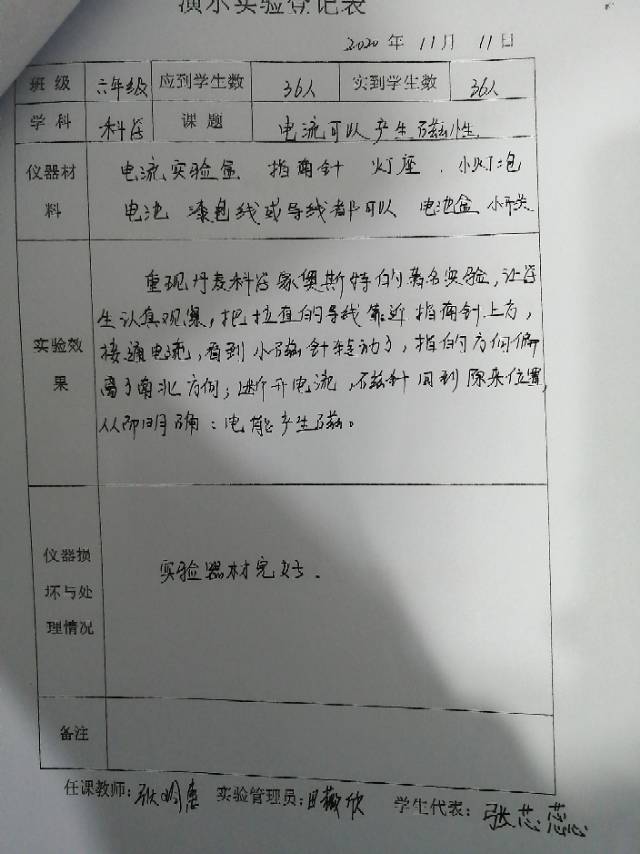 演示实验登记表
2020年 11月 11日
班级 六年级 应到学生数 36人 实到学生数 36人
学科 科学 课题 电流可以产生磁性
仪器材料 电流实验盒 指南针 灯座 、小灯泡
电池 漆包线或导线都可以 电池盒 小开关
实验效果 重现丹麦科学家奥斯特的著名实验,让学
生认真观察,把拉直的导线靠近指南针上方,
接通电流,看到小磁针转动了,指的方向偏
离了南北方向;断开电流,磁针回到原来位置,
从而明确:电能产生磁。
仪器损坏与处理情况 实验器材完好.
备注
任课教师: 张 实验管理员: 学生代表: 张芯蕊